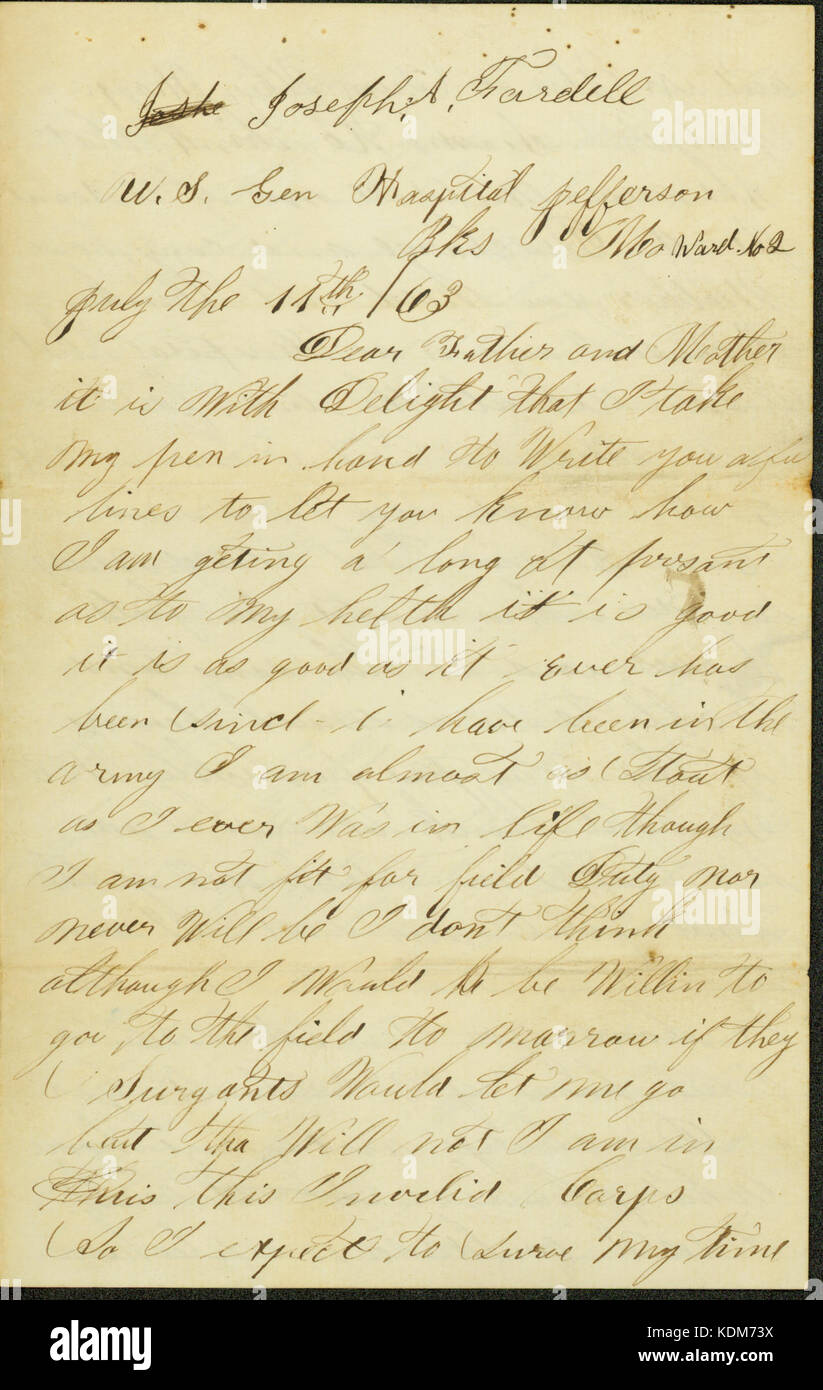 Joshe Joseph. A. Fardell
U. S. Gen Haspital jefferson
Bks Mo Ward. No 2
july the 11th /63
Dear Father and Mother
it is With Delight that I take
my pen in hand to Write you a fu
lines to let you know how
I am geting a long at presant
as to my helth it is good
it is as good as it ever has
been sinc i have been in the
army I am almost as Stout
as I ever Was in life though
I am not fit for field Duty nor
never Will be I dont think
although I Would be Willin to
go to the field to morrow if they
Surgants Would let me go
but tha Will not I am in
this this Invelid Corps
So I expect to Surve my time
alamy
alamy
alamy
a
a
a
a
alamy
Image ID: KDM73X
www.alamy.com